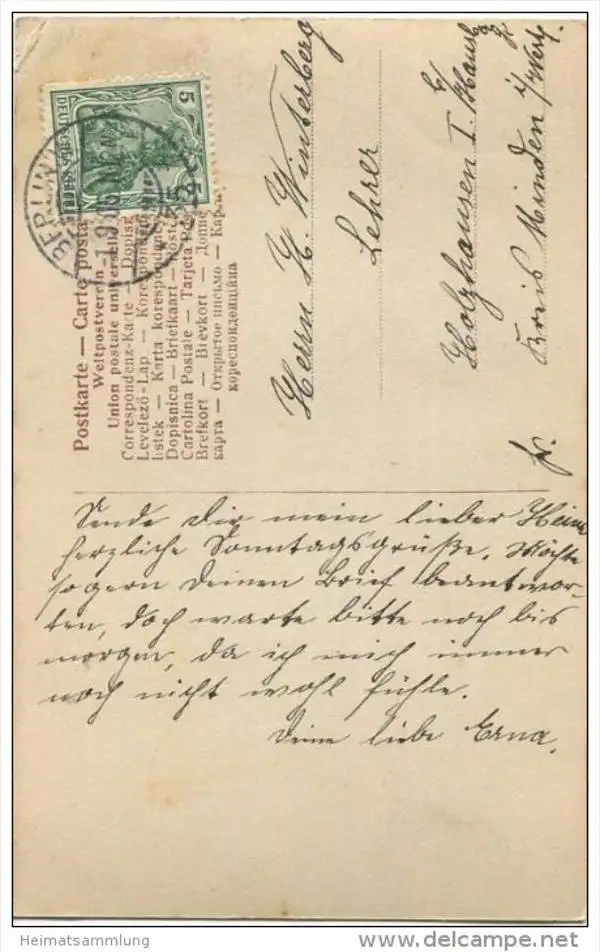 Postkarte — Carte postale
Weltpostverein
Union postale universelle
Correspondenz-Karte — Dopisnice
Levelező-Lap — Korespondenz
listek — Karta korespondencyjna
Dopisnica — Briefkaart — Postcard
Cartolina Postale — Tarjeta Postal
Brefkort — Brevkort — Дописна
карта — Открытое письмо — Карта
кореспонденційна
5
DEUTSCHES REICH
BERLIN
Herrn H. Winterberg
Lehrer
Holzhausen I. b/ Haus
Kreis Minden i/ Westf.
fr.
Sende Dir mein lieber Heini
herzliche Sonntagsgrüße. Möchte
so gern Deinen Brief beantwor-
ten, doch warte bitte noch bis
morgen, da ich mich immer
noch nicht wohl fühle.
Deine liebe Erna.
Heimatsammlung
www.delcampe.net